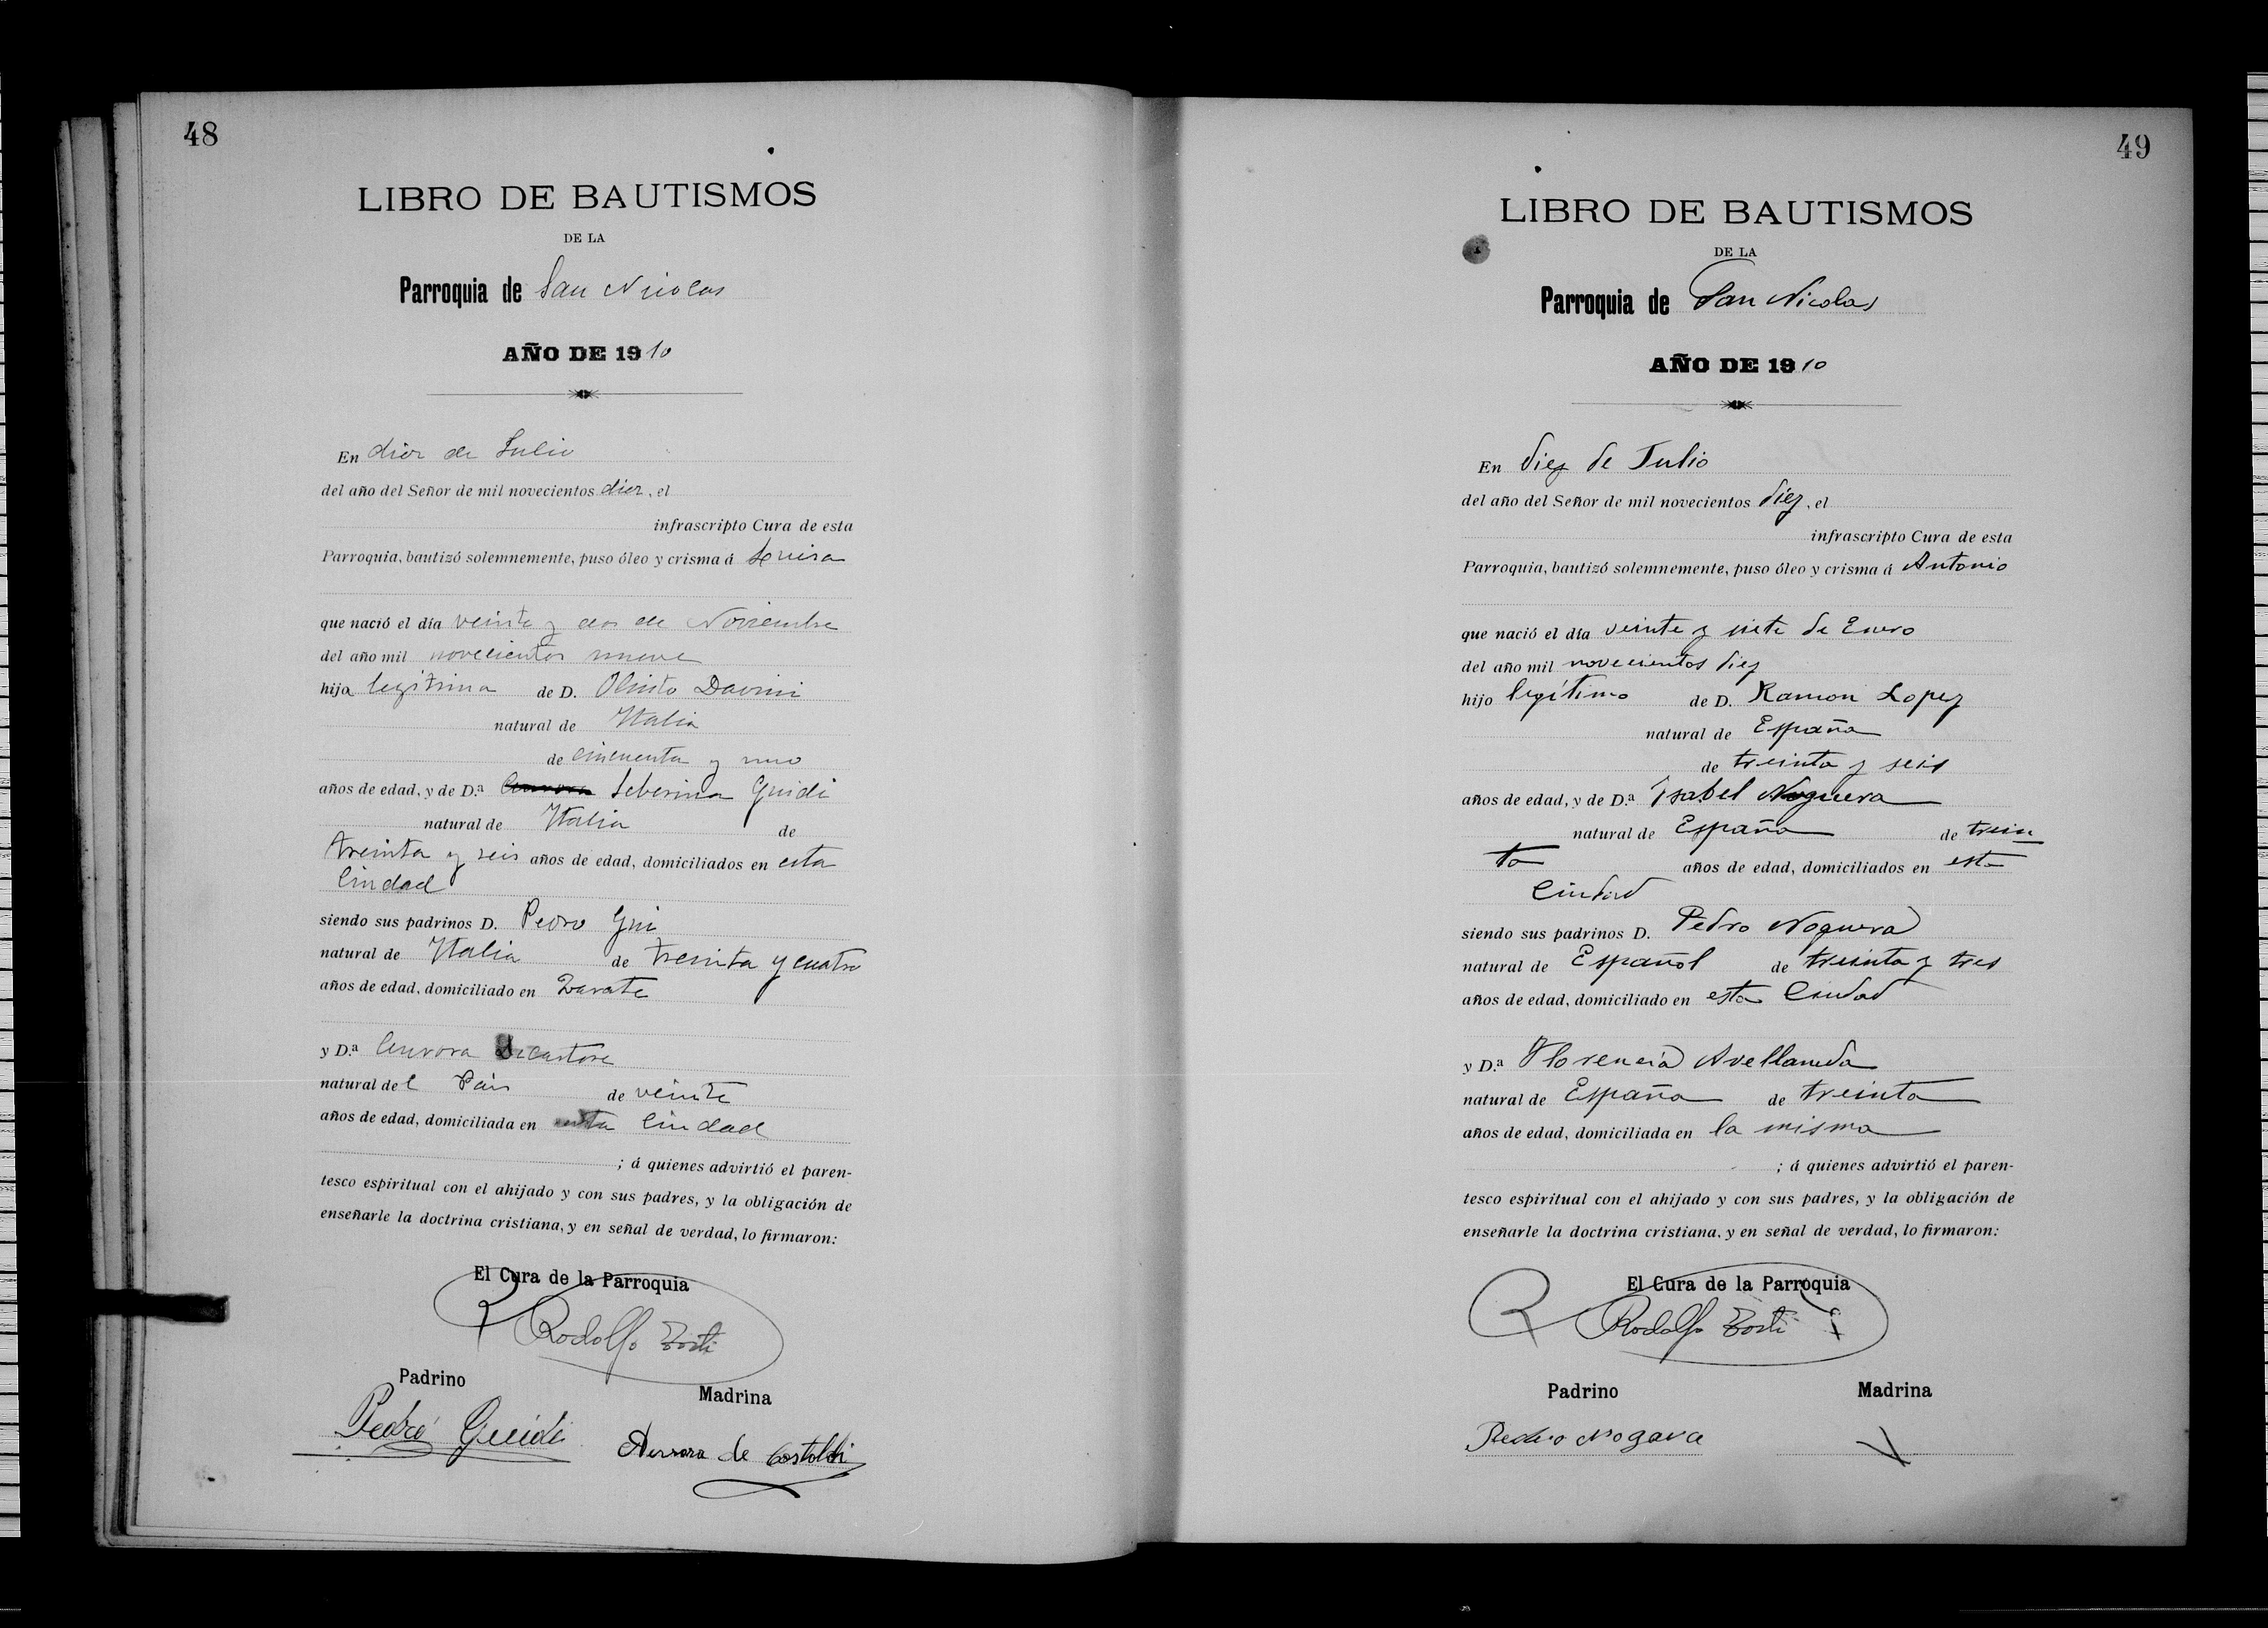 48
LIBRO DE BAUTISMOS
DE LA
Parroquia de San Nicolas
AÑO DE 1910
En diez de Julio
del año del Señor de mil novecientos diez, el
infrascripto Cura de esta
Parroquia, bautizó solemnemente, puso óleo y crisma á Luisa
que nació el día veinte y dos de Noviembre
del año mil novecientos nueve
hija legítima de D. Olinto Davini
natural de Italia
de cincuenta y uno
años de edad, y de D.ª Aurora Seberina Guidi
natural de Italia de
treinta y seis años de edad, domiciliados en esta
Ciudad
siendo sus padrinos D. Pedro Gui
natural de Italia de treinta y cuatro
años de edad, domiciliado en Zarate
y D.ª Aurora
natural del Pais de veinte
años de edad, domiciliada en esta Ciudad
; á quienes advirtió el paren-
tesco espiritual con el ahijado y con sus padres, y la obligación de
enseñarle la doctrina cristiana, y en señal de verdad, lo firmaron:
El Cura de la Parroquia
Rodolfo
Padrino
Madrina
Pedro Guidi
de Costoldi
49
LIBRO DE BAUTISMOS
DE LA
Parroquia de San Nicolas
AÑO DE 1910
En diez de Julio
del año del Señor de mil novecientos diez, el
infrascripto Cura de esta
Parroquia, bautizó solemnemente, puso óleo y crisma á Antonio
que nació el día veinte y siete de Enero
del año mil novecientos diez
hijo legítimo de D. Ramon Lopez
natural de España
de treinta y seis
años de edad, y de D.ª Isabel Noguera
natural de España de trein
ta años de edad, domiciliados en esta
Ciudad
siendo sus padrinos D. Pedro Noguera
natural de Español de treinta y tres
años de edad, domiciliado en esta Ciudad
y D.ª Florencia Avellaneda
natural de España de treinta
años de edad, domiciliada en la misma
; á quienes advirtió el paren-
tesco espiritual con el ahijado y con sus padres, y la obligación de
enseñarle la doctrina cristiana, y en señal de verdad, lo firmaron:
El Cura de la Parroquia
Rodolfo
Padrino
Madrina
Pedro Nogava